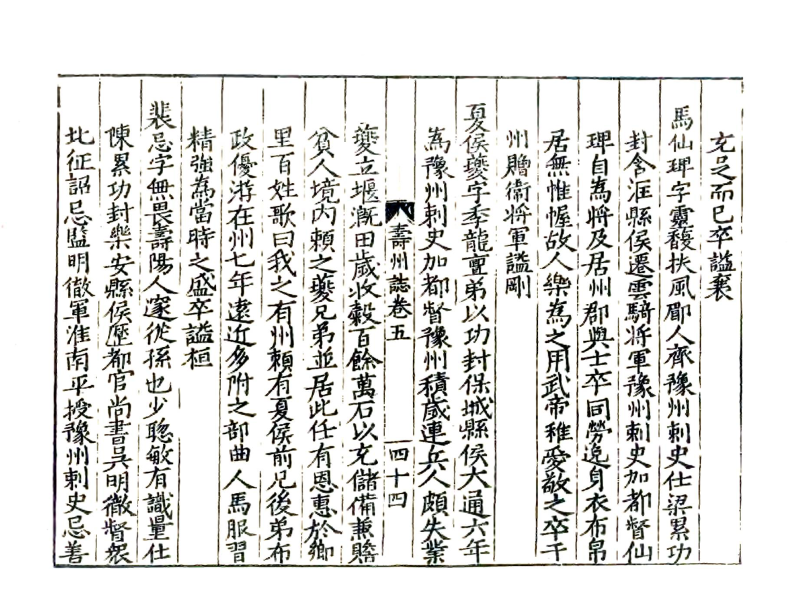 充足而已卒謚襄
馬仙琕字靈馥扶風郿人齊豫州刺史仕梁累功
封含洭縣侯遷雲騎將軍豫州刺史加都督仙
琕自為將及居州郡與士卒同勞逸身衣布帛
居無帷幄故人樂為之用武帝雅愛敬之卒于
州贈衛將軍謚剛
夏侯夔字季龍亶弟以功封保城縣侯大通六年
為豫州刺史加都督豫州積歲連兵人頗失業
壽州誌卷五
四十四
夔立堰溉田歲收穀百餘萬石以充儲備兼贍
貧人境內賴之夔兄弟並居此任有恩惠於鄉
里百姓歌曰我之有州賴有夏侯前兄後弟布
政優游在州七年遠近多附之部曲人馬服習
精強為當時之盛卒謚桓
裴忌字無畏壽陽人邃從孫也少聰敏有識量仕
陳累功封樂安縣侯歷都官尚書吳明徹督衆
北征詔忌監明徹軍淮南平授豫州刺史忌善